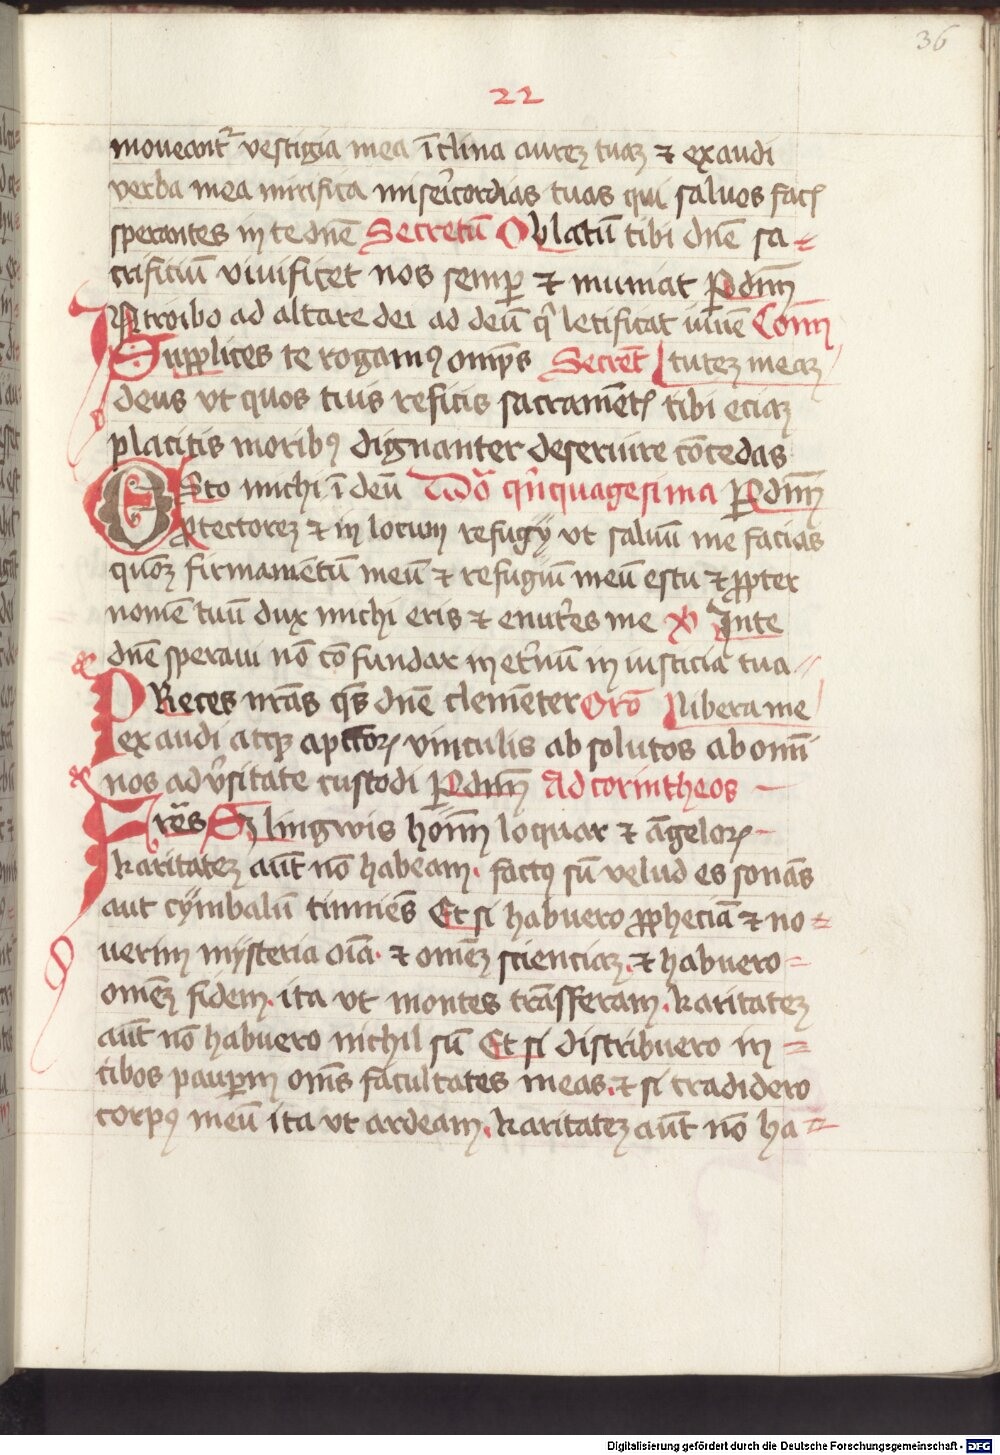 36
22
moueant᷑ vestigia mea īclina aurez tuaz ⁊ exaudi
verba mea mirifica misēricordias tuas qui saluos facꝭ
sperantes in te dn̄e Secretū Oblatū tibi dn̄e sa-
crificiū viuificet nos semꝑ ⁊ muniat P dn̄m
Introibo ad altare dei ad deū q̄ letificat iuuē Com̄
Supplices te rogamꝰ om̄ps Secret̄ tutez meaz
deus vt quos tuis reficis sacramētꝭ tibi eciaz
placitis moribꝰ dignanter deseruire cōcedas
ESto michi ī deū Dō qn̄quagesima P dn̄m
ꝓtectorez ⁊ in locum refugij vt saluū me facias
quōz firmamētū meū ⁊ refugiū meū es tu ⁊ ꝓpter
nomē tuū dux michi eris ⁊ enut̓es me In te
dn̄e speraui nō cōfundar in et̓nū in iusticia tua
PReces nr̄as qs̄ dn̄e clemēter Orō libera me
exaudi atqꝫ a pctōꝝ vinculis absolutos ab omī
nos adv̓sitate custodi P dn̄m Ad corintheos
Fr̄es Sz lingwis hoīm loquar ⁊ āgeloꝝ
karitatez aūt nō habeam. factꝰ sū velud es sonās
aut cÿmbalū tinniēs Et si habuero ꝓpheciā ⁊ no-
uerim mijsteria oīa. ⁊ omēz scienciaz. ⁊ habuero
omēz fidem. ita vt montes trāsferam. karitatez
aūt nō habuero nichil sū Et si distribuero in
cibos pauꝑm om̄s facultates meas. ⁊ si tradidero
corpꝰ meū ita vt ardeam. karitatez aūt nō ha-
Digitalisierung gefördert durch die Deutsche Forschungsgemeinschaft - DFG